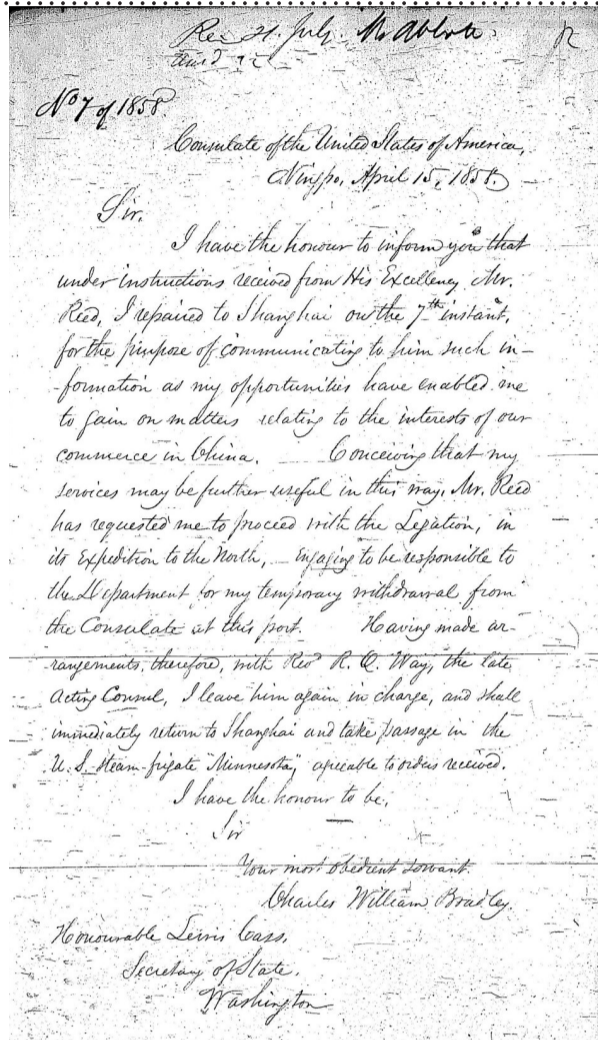 Rec 21. July. Mr Abbot
No 7 of 1858.
Consulate of the United States of America,
Ningpo, April 15, 1858.
Sir.
I have the honour to inform you that
under instructions received from His Excellency Mr.
Reed, I repaired to Shanghai on the 7th instant,
for the purpose of communicating to him such in-
-formation as my opportunities have enabled me
to gain on matters relating to the interests of our
commerce in China. Conceiving that my
services may be further useful in this way, Mr. Reed
has requested me to proceed with the Legation, in
its Expedition to the North, — engaging to be responsible to
the Department for my temporary withdrawal from
the Consulate at this port. Having made ar-
rangements, therefore, with Revd R. Q. Way, the late
Acting Consul, I leave him again in charge, and shall
immediately return to Shanghai and take passage in the
U. S. steam-frigate "Minnesota," agreeable to orders received.
I have the honour to be,
Sir
Your most obedient servant.
Charles William Bradley.
Honourable Lewis Cass,
Secretary of State.
Washington